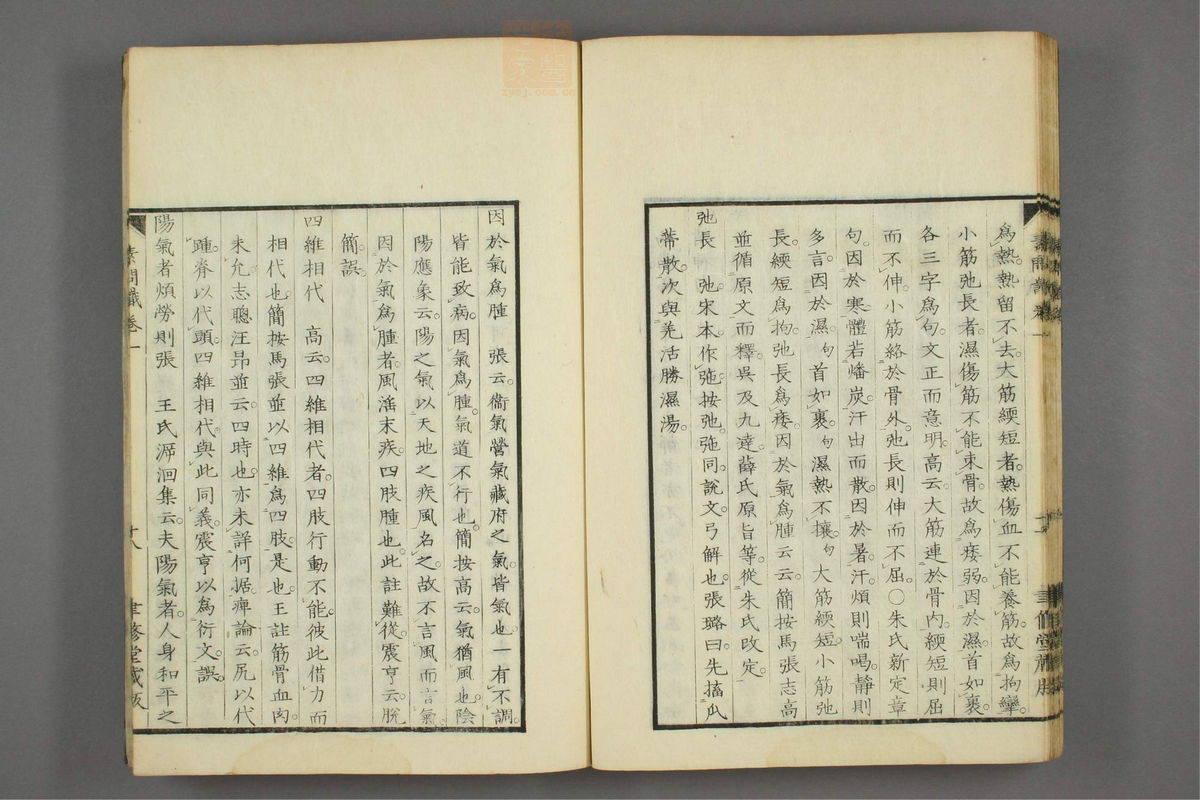 爲熱熱留不去大筋緛短者熱傷血不能養筋故爲拘攣
小筋弛長者濕傷筋不能束骨故爲痿弱因於濕首如裹
各三字爲句文正而意明高云大筋連於骨内緛短則屈
而不伸小筋絡於骨外弛長則伸而不屈○朱氏新定章
句因於寒體若燔炭汗出而散因於暑汗煩則喘喝靜則
多言因於濕句首如裹句濕熱不攘句大筋緛短小筋弛
長緛短爲拘弛長爲痿因於氣爲腫云云簡按馬張志高
並循原文而釋吳及九達薛氏原旨等從朱氏改定
弛長　弛宋本作㢮按弛㢮同說文弓解也張璐曰先搐瓜
蒂散次與羌活勝濕湯
因於氣爲腫　張云衞氣營氣藏府之氣皆氣也一有不調
皆能致病因氣爲腫氣道不行也簡按高云氣猶風也陰
陽應象云陽之氣以天地之疾風名之故不言風而言氣
因於氣爲腫者風淫末疾四肢腫也此註難從震亨云脫
簡誤
四維相代　高云四維相代者四肢行動不能彼此借力而
相代也簡按馬張並以四維爲四肢是也王註筋骨血肉
未允志聰汪昂並云四時也亦未詳何据痺論云尻以代
踵脊以代頭四維相代與此同義震亨以爲衍文誤
陽氣者煩勞則張　王氏泝洄集云夫陽氣者人身和平之
素問識卷一
十八
聿修堂藏版